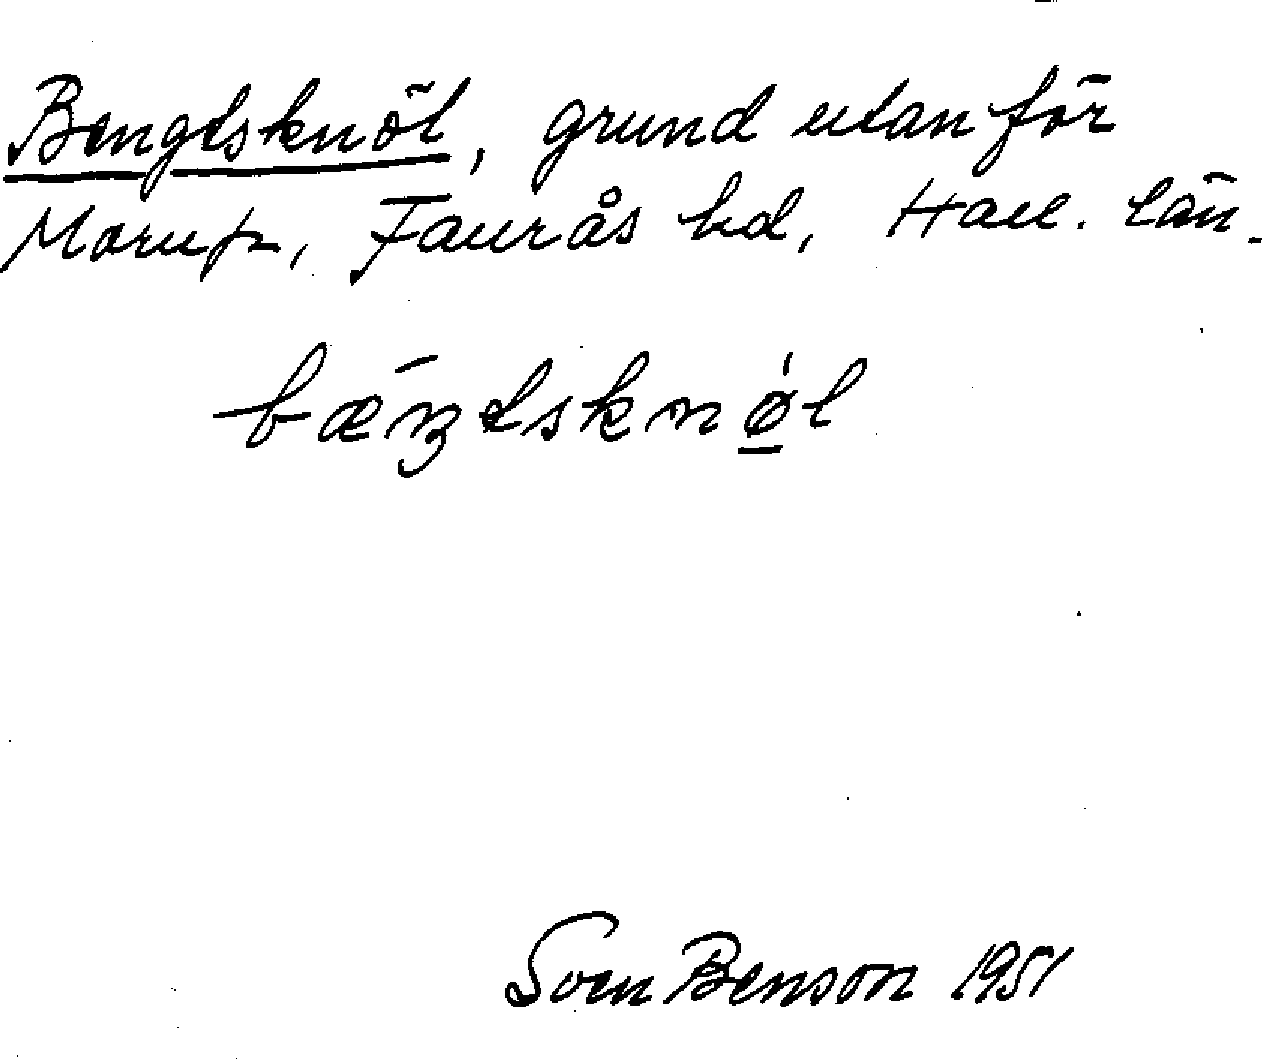 Bengtsknöl, grund utanför
Morup, Faurås hd, Hall. län.
bæŋtsknø̱l
Sven Benson 1951